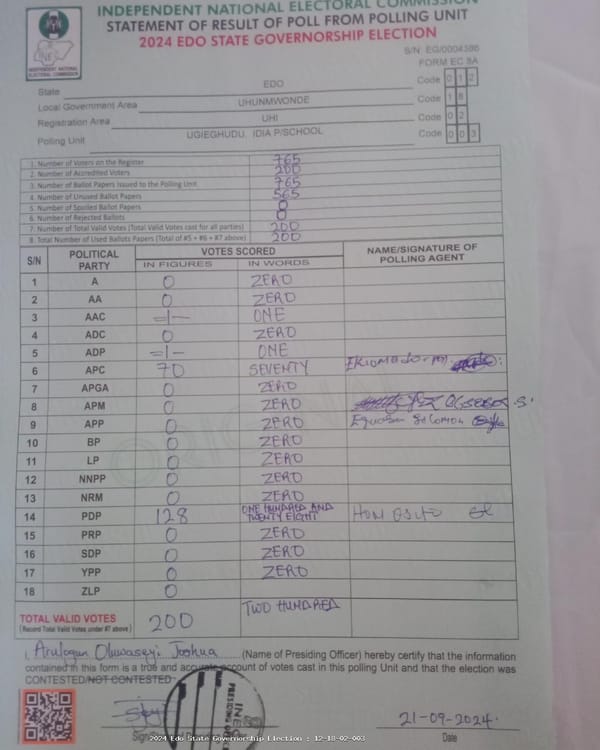 INDEPENDENT NATIONAL ELECTORAL COMMISSION
STATEMENT OF RESULT OF POLL FROM POLLING UNIT
2024 EDO STATE GOVERNORSHIP ELECTION
INDEPENDENT NATIONAL ELECTORAL COMMISSION
S/N EG/0004386
FORM EC 8A
State EDO Code 0 1 2
Local Government Area UHUNMWONDE Code 1 8
Registration Area UHI Code 0 2
Polling Unit UGIEGHUDU. IDIA P/SCHOOL Code 0 0 3
1. Number of Voters on the Register 765
2. Number of Accredited Voters 200
3. Number of Ballot Papers Issued to the Polling Unit 765
4. Number of Unused Ballot Papers 565
5. Number of Spoiled Ballot Papers 0
6. Number of Rejected Ballots 0
7. Number of Total Valid Votes (Total Valid Votes cast for all parties) 200
8. Total Number of Used Ballots Papers (Total of #5 + #6 + #7 above) 200
S/N POLITICAL PARTY VOTES SCORED NAME/SIGNATURE OF POLLING AGENT
IN FIGURES IN WORDS
1 A 0 ZERO
2 AA 0 ZERO
3 AAC =1= ONE
4 ADC 0 ZERO
5 ADP =1= ONE
6 APC 70 SEVENTY
7 APGA 0 ZERO
8 APM 0 ZERO
9 APP 0 ZERO SOLOMON
10 BP 0 ZERO
11 LP 0 ZERO
12 NNPP 0 ZERO
13 NRM 0 ZERO
14 PDP 128 ONE HUNDRED AND TWENTY EIGHT HON
15 PRP 0 ZERO
16 SDP 0 ZERO
17 YPP 0 ZERO
18 ZLP 0
TOTAL VALID VOTES 200 TWO HUNDRED
(Record Total Valid Votes under #7 above)
I, Arulogun Oluwaseyi Joshua (Name of Presiding Officer) hereby certify that the information
contained in this form is a true and accurate account of votes cast in this polling Unit and that the election was
CONTESTED/NOT CONTESTED
INEC
21-09-2024.
Date
2024 Edo State Governorship Election : 12-18-02-003